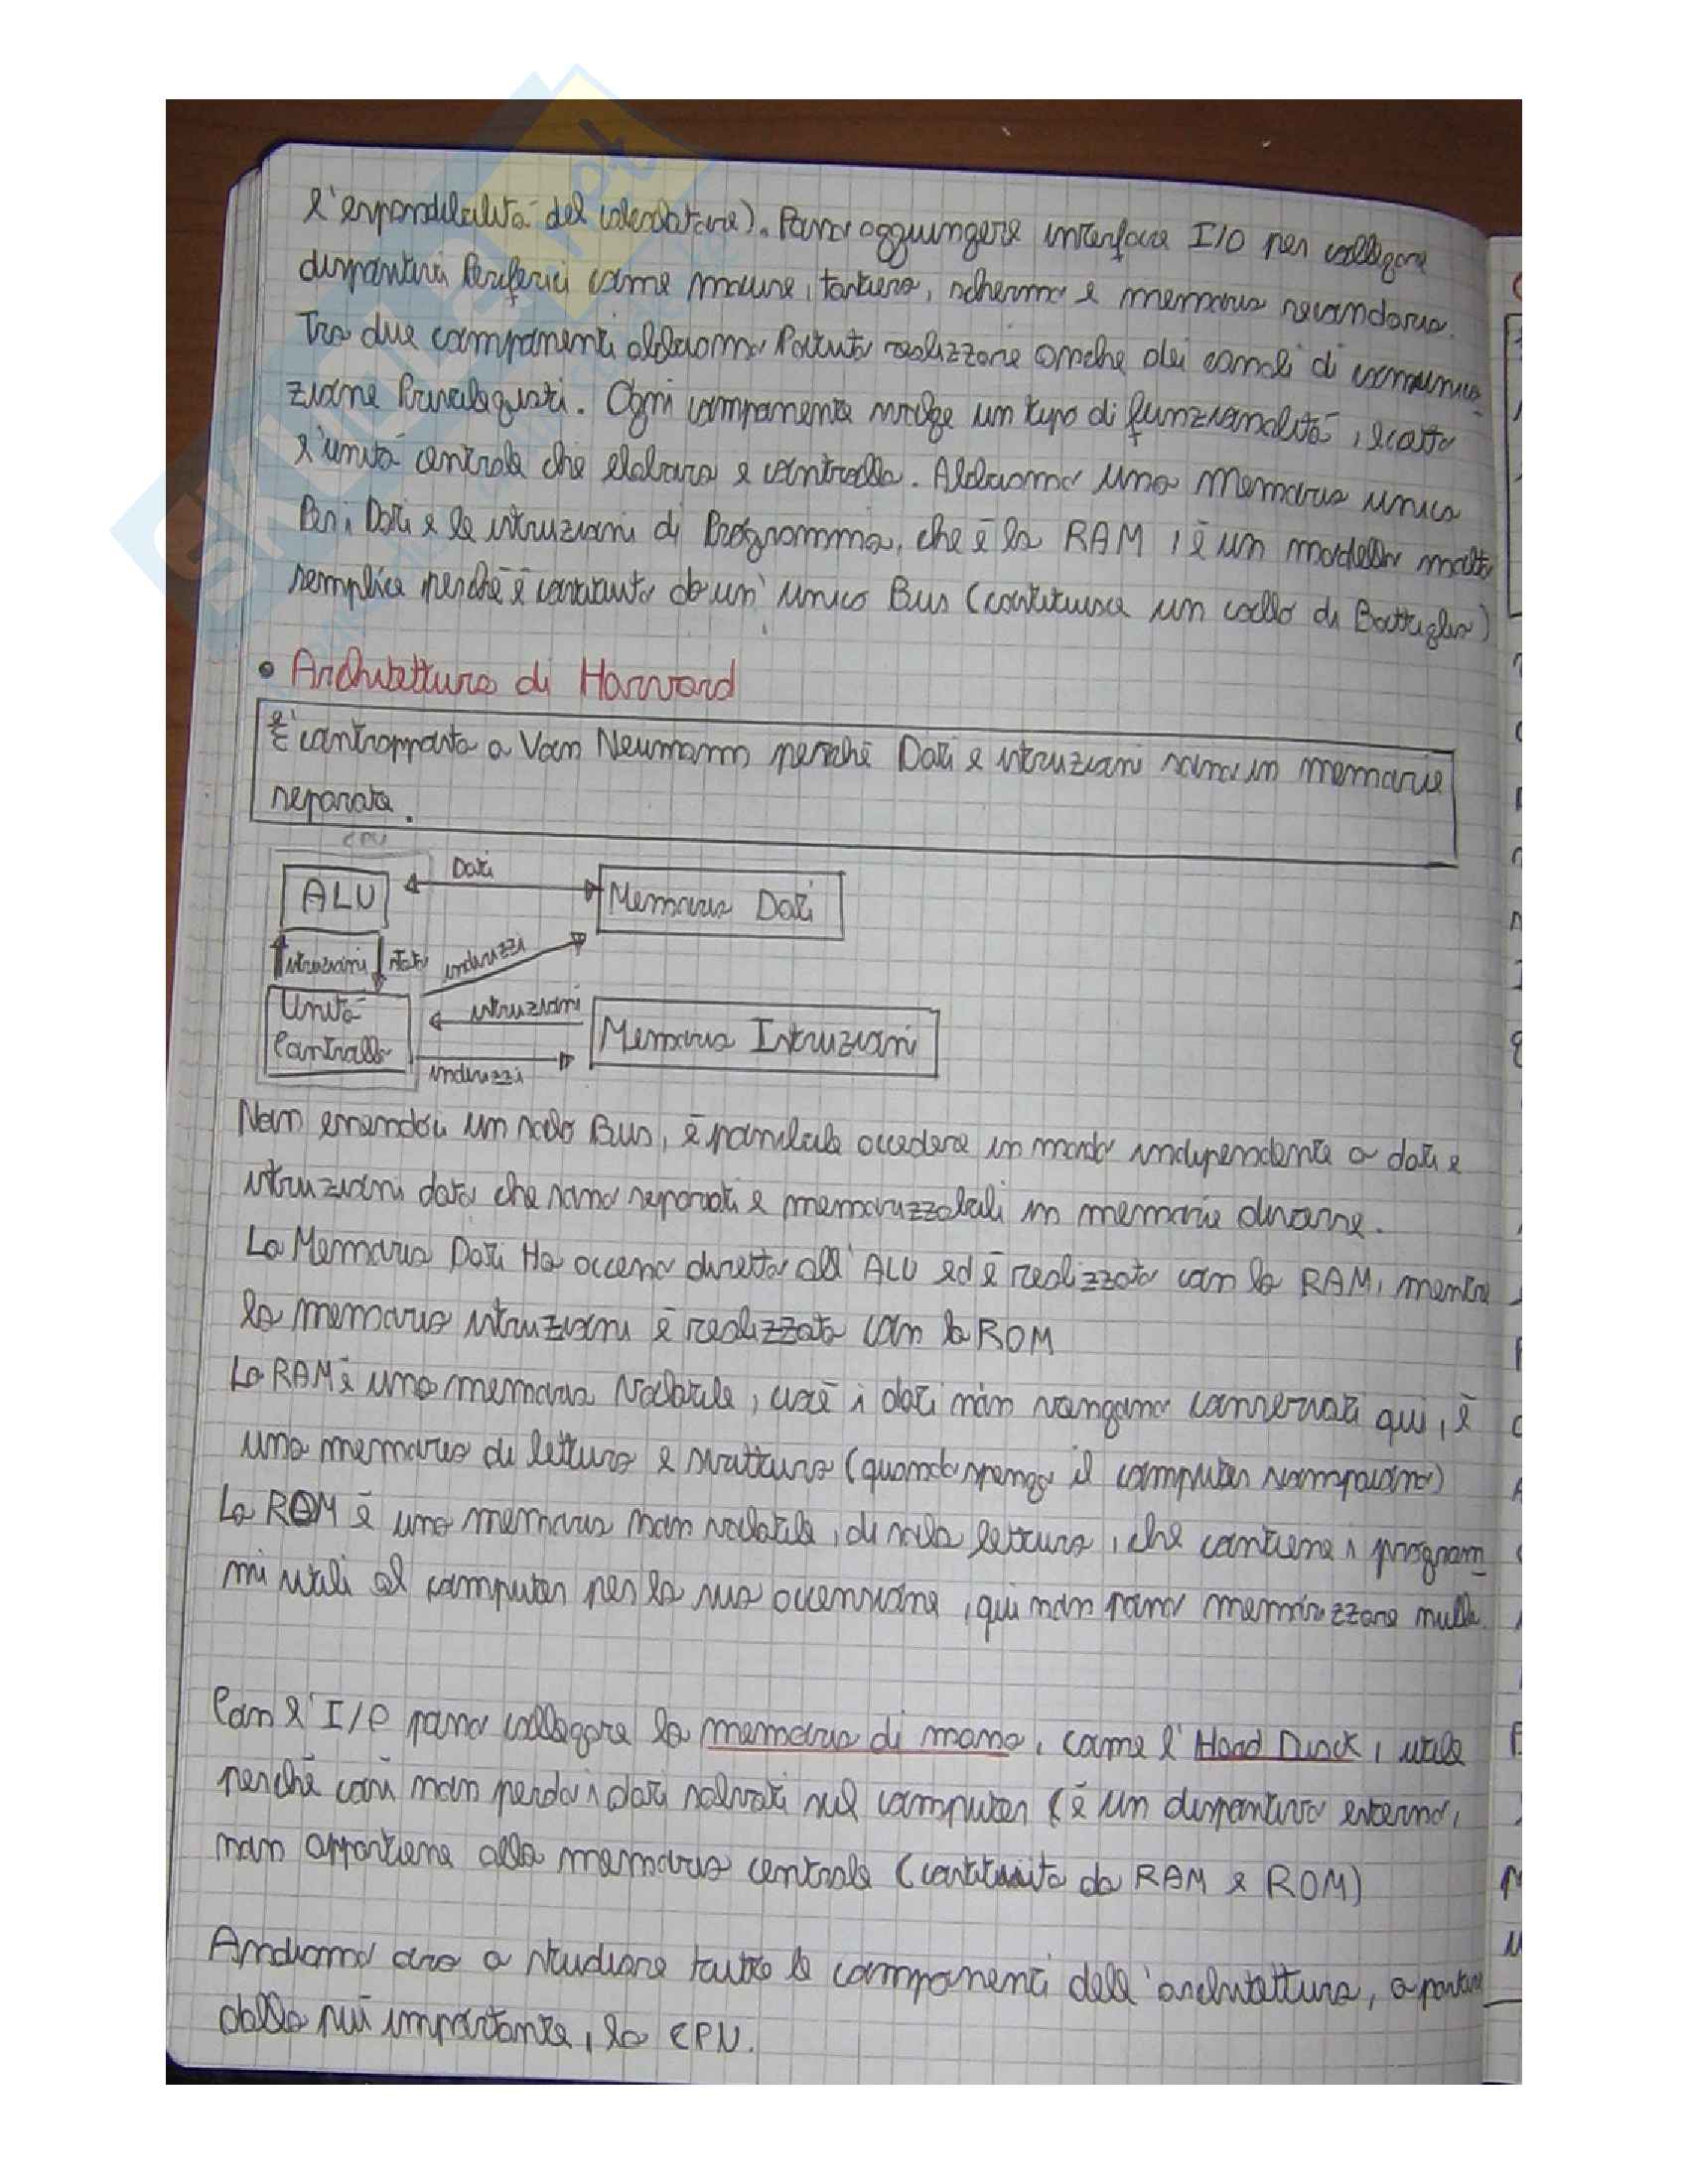 l'espandibilità del calcolatore). Posso aggiungere interfacce I/O per collegare
dispositivi Periferici come mouse, tastiera, schermo e memoria secondaria.
Tra due componenti abbiamo Potuto realizzare anche dei canali di comunica-
zione Privilegiati. Ogni componente svolge un tipo di funzionalità, eccetto
l'unità centrale che elabora e controlla. Abbiamo una memoria unica
Per i Dati e le istruzioni di Programma, che è la RAM, è un modello molto
semplice perché è costituito da un' unico Bus (costituisce un collo di Bottiglia)
• Architettura di Harvard
E' contrapposta a Von Neumann perché Dati e istruzioni sono in memorie
separate.
CPU
ALU
Dati
Memoria Dati
istruzioni
stato
indirizzi
Unità
Controllo
istruzioni
indirizzi
Memoria Istruzioni
Non essendoci un solo Bus, è possibile accedere in modo indipendente a dati e
istruzioni dato che sono separati e memorizzabili in memorie diverse.
La Memoria Dati Ha accesso diretto all'ALU ed è realizzata con la RAM, mentre
la memoria istruzioni è realizzata con la ROM
La RAM è una memoria Volatile, cioè i dati non vengono conservati qui, è
una memoria di lettura e scrittura (quando spengo il computer scompaiono)
La ROM è una memoria non volatile, di sola lettura, che contiene i program-
mi utili al computer per la sua accensione, qui non posso memorizzare nulla.
Con l'I/O posso collegare la memoria di massa, come l'Hard Disck, utile
perché così non perdo i dati salvati sul computer (è un dispositivo esterno,
non appartiene alla memoria centrale (costituita da RAM e ROM)
Andiamo ora a studiare tutte le componenti dell'architettura, a partire
dalla più importante, la CPU.